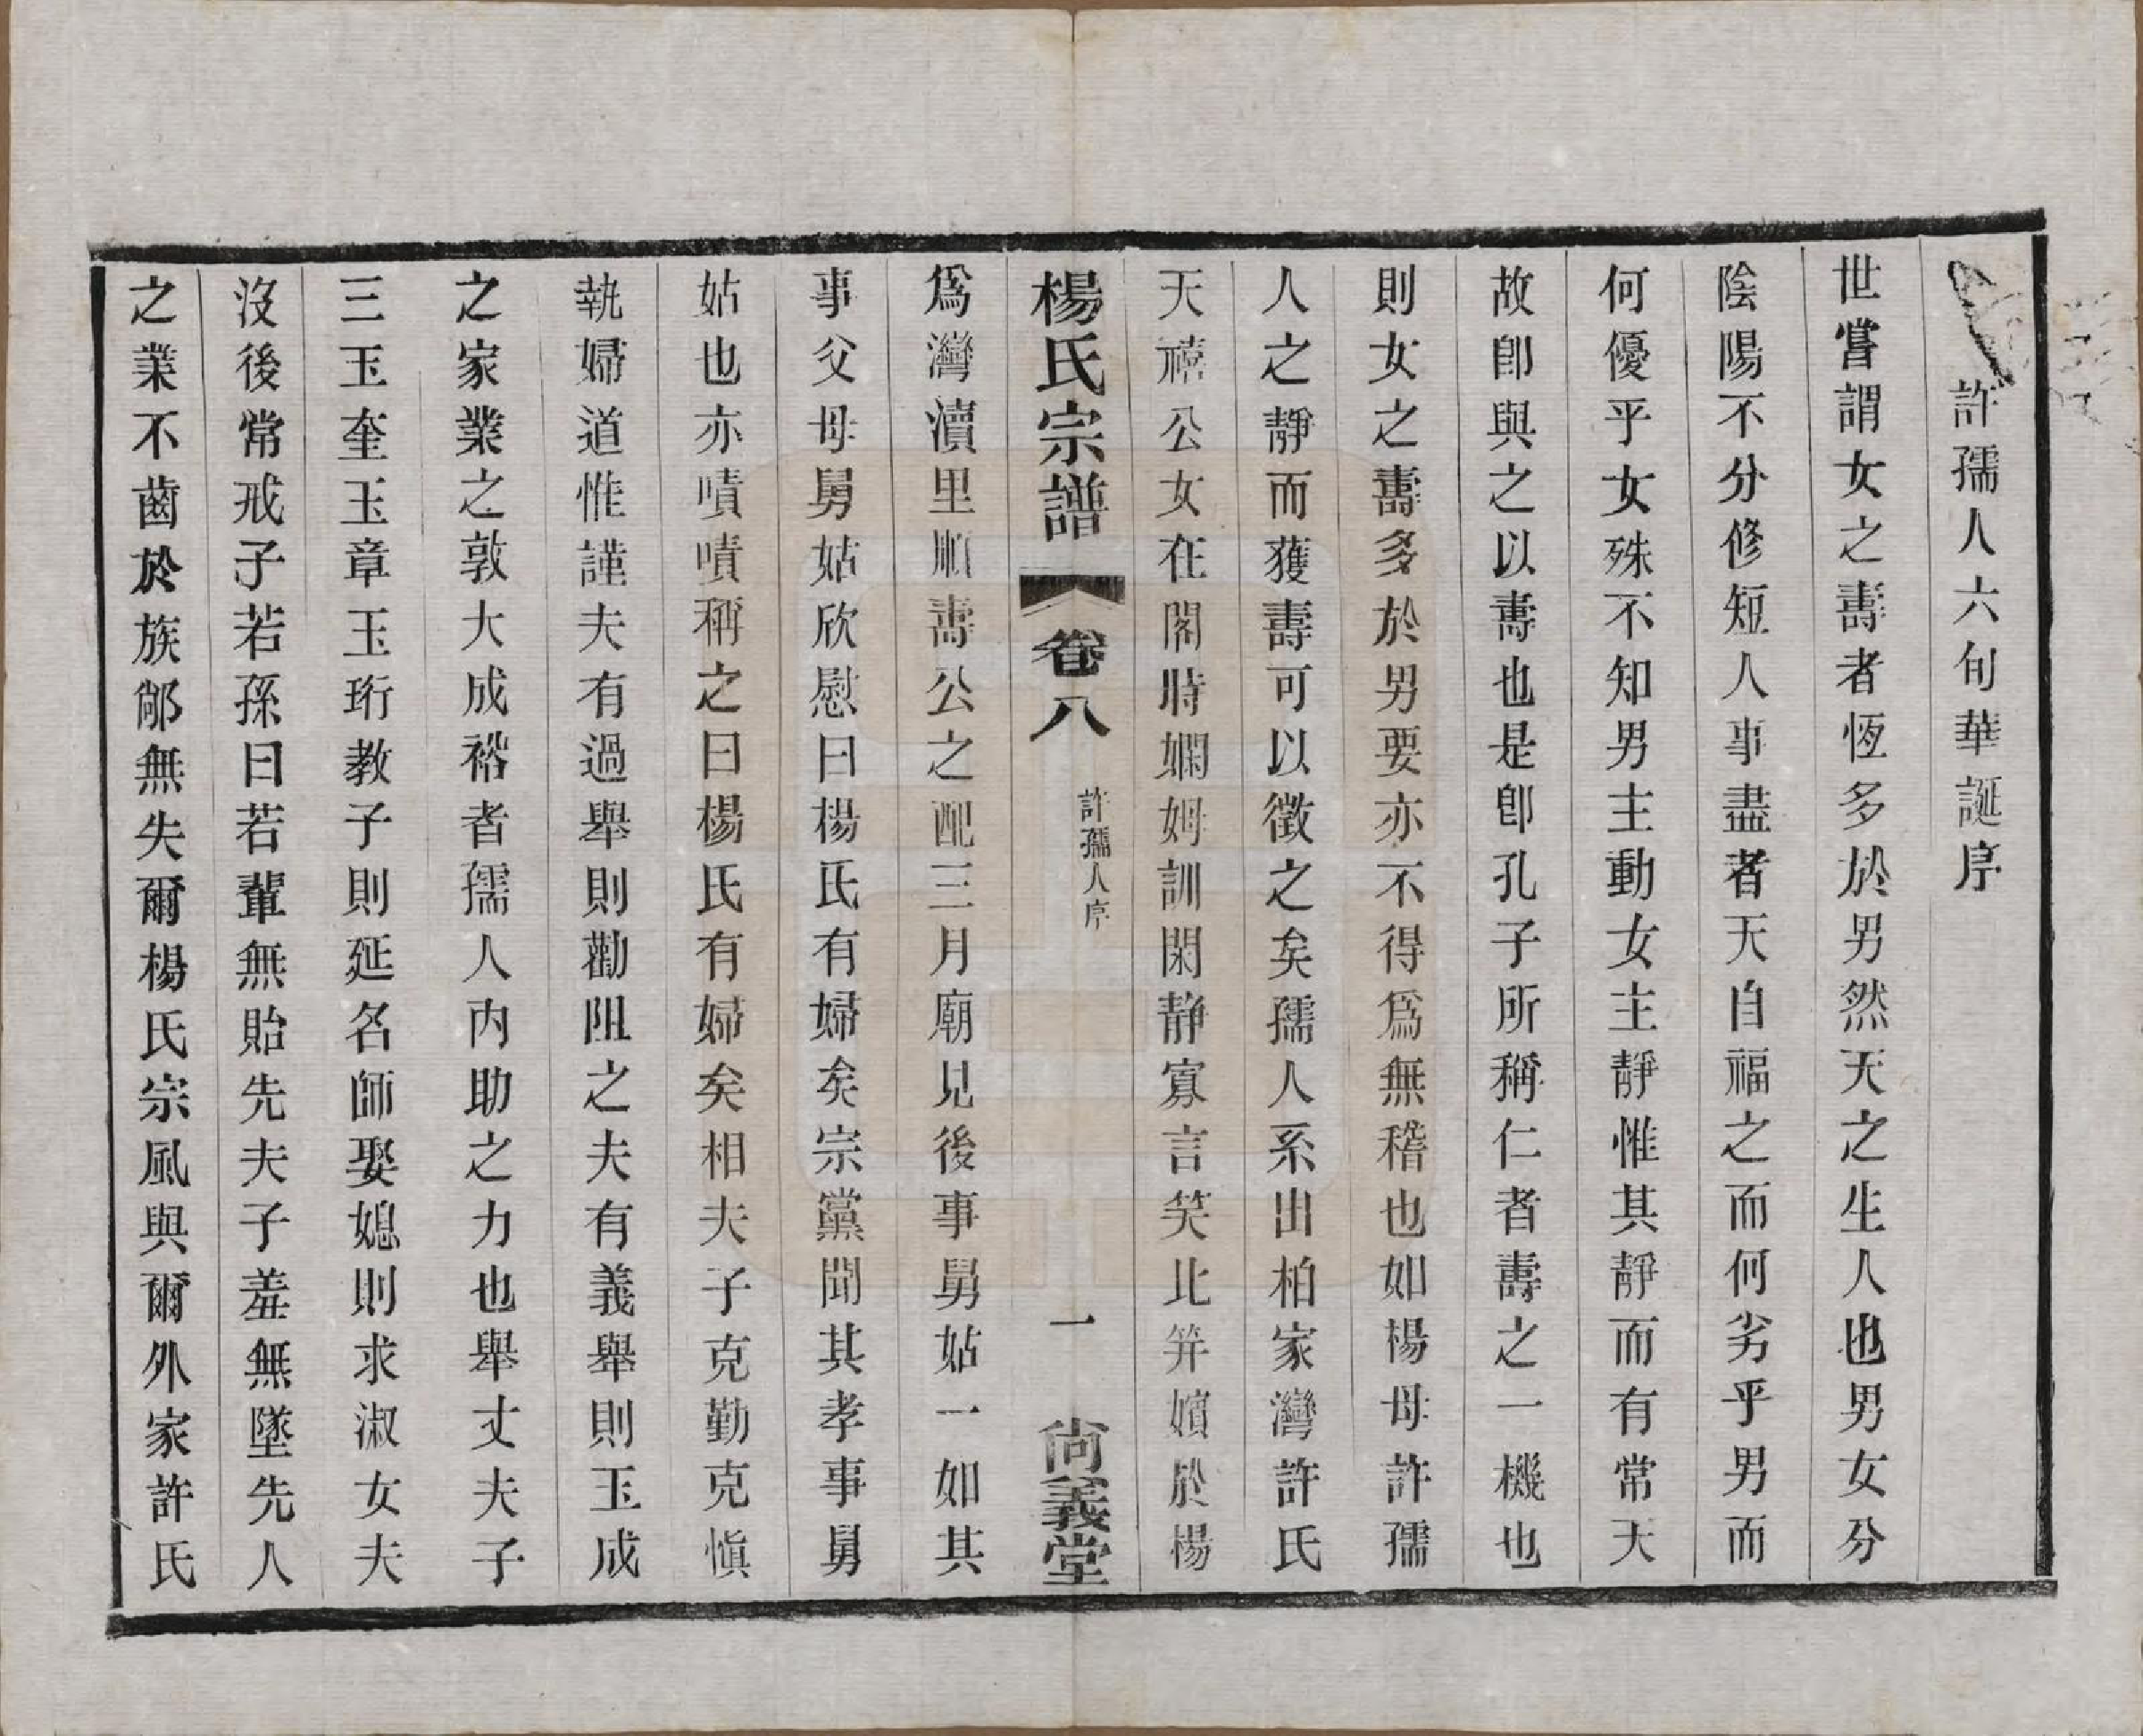 許孺人六旬華誕序
世嘗謂女之壽者恆多於男然天之生人也男女分
陰陽不分修短人事盡者天自福之而何劣乎男而
何優乎女殊不知男主動女主靜惟其靜而有常天
故卽與之以壽也是卽孔子所稱仁者壽之一機也
則女之壽多於男要亦不得爲無稽也如楊母許孺
人之靜而獲壽可以徵之矣孺人系出柏家灣許氏
天禧公女在閣時嫻姆訓閑静寡言笑比笄嬪於楊
楊氏宗譜 卷八 許孺人序 一 尙義堂
爲灣瀆里順壽公之配三月廟見後事舅姑一如其
事父母舅姑欣慰曰楊氏有婦矣宗黨聞其孝事舅
姑也亦嘖嘖稱之曰楊氏有婦矣相夫子克勤克愼
執婦道惟謹夫有過舉則勸阻之夫有義舉則玉成
之家業之敦大成裕者孺人内助之力也舉丈夫子
三玉奎玉章玉珩教子則延名師娶媳則求淑女夫
沒後常戒子若孫曰若輩無貽先夫子羞無墜先人
之業不齒於族鄰無失爾楊氏宗風與爾外家許氏